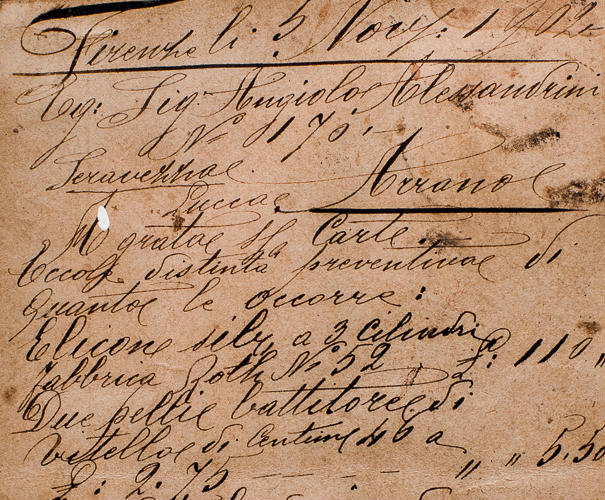 Firenze li 5 Nov: 1902
Eg: Sig: Angiolo Alessandrini
N° 170
Seravezza
Lucca Arrano
A grata Carte
Eccole distinta preventiva di
quanto le occorre:
Elicone sib a 3 cilindri
fabbrica Roth N° 52 £: 110 "
Due pelli battitore di
vitello di Centim 40 a
£: 2.75 " " 5.50